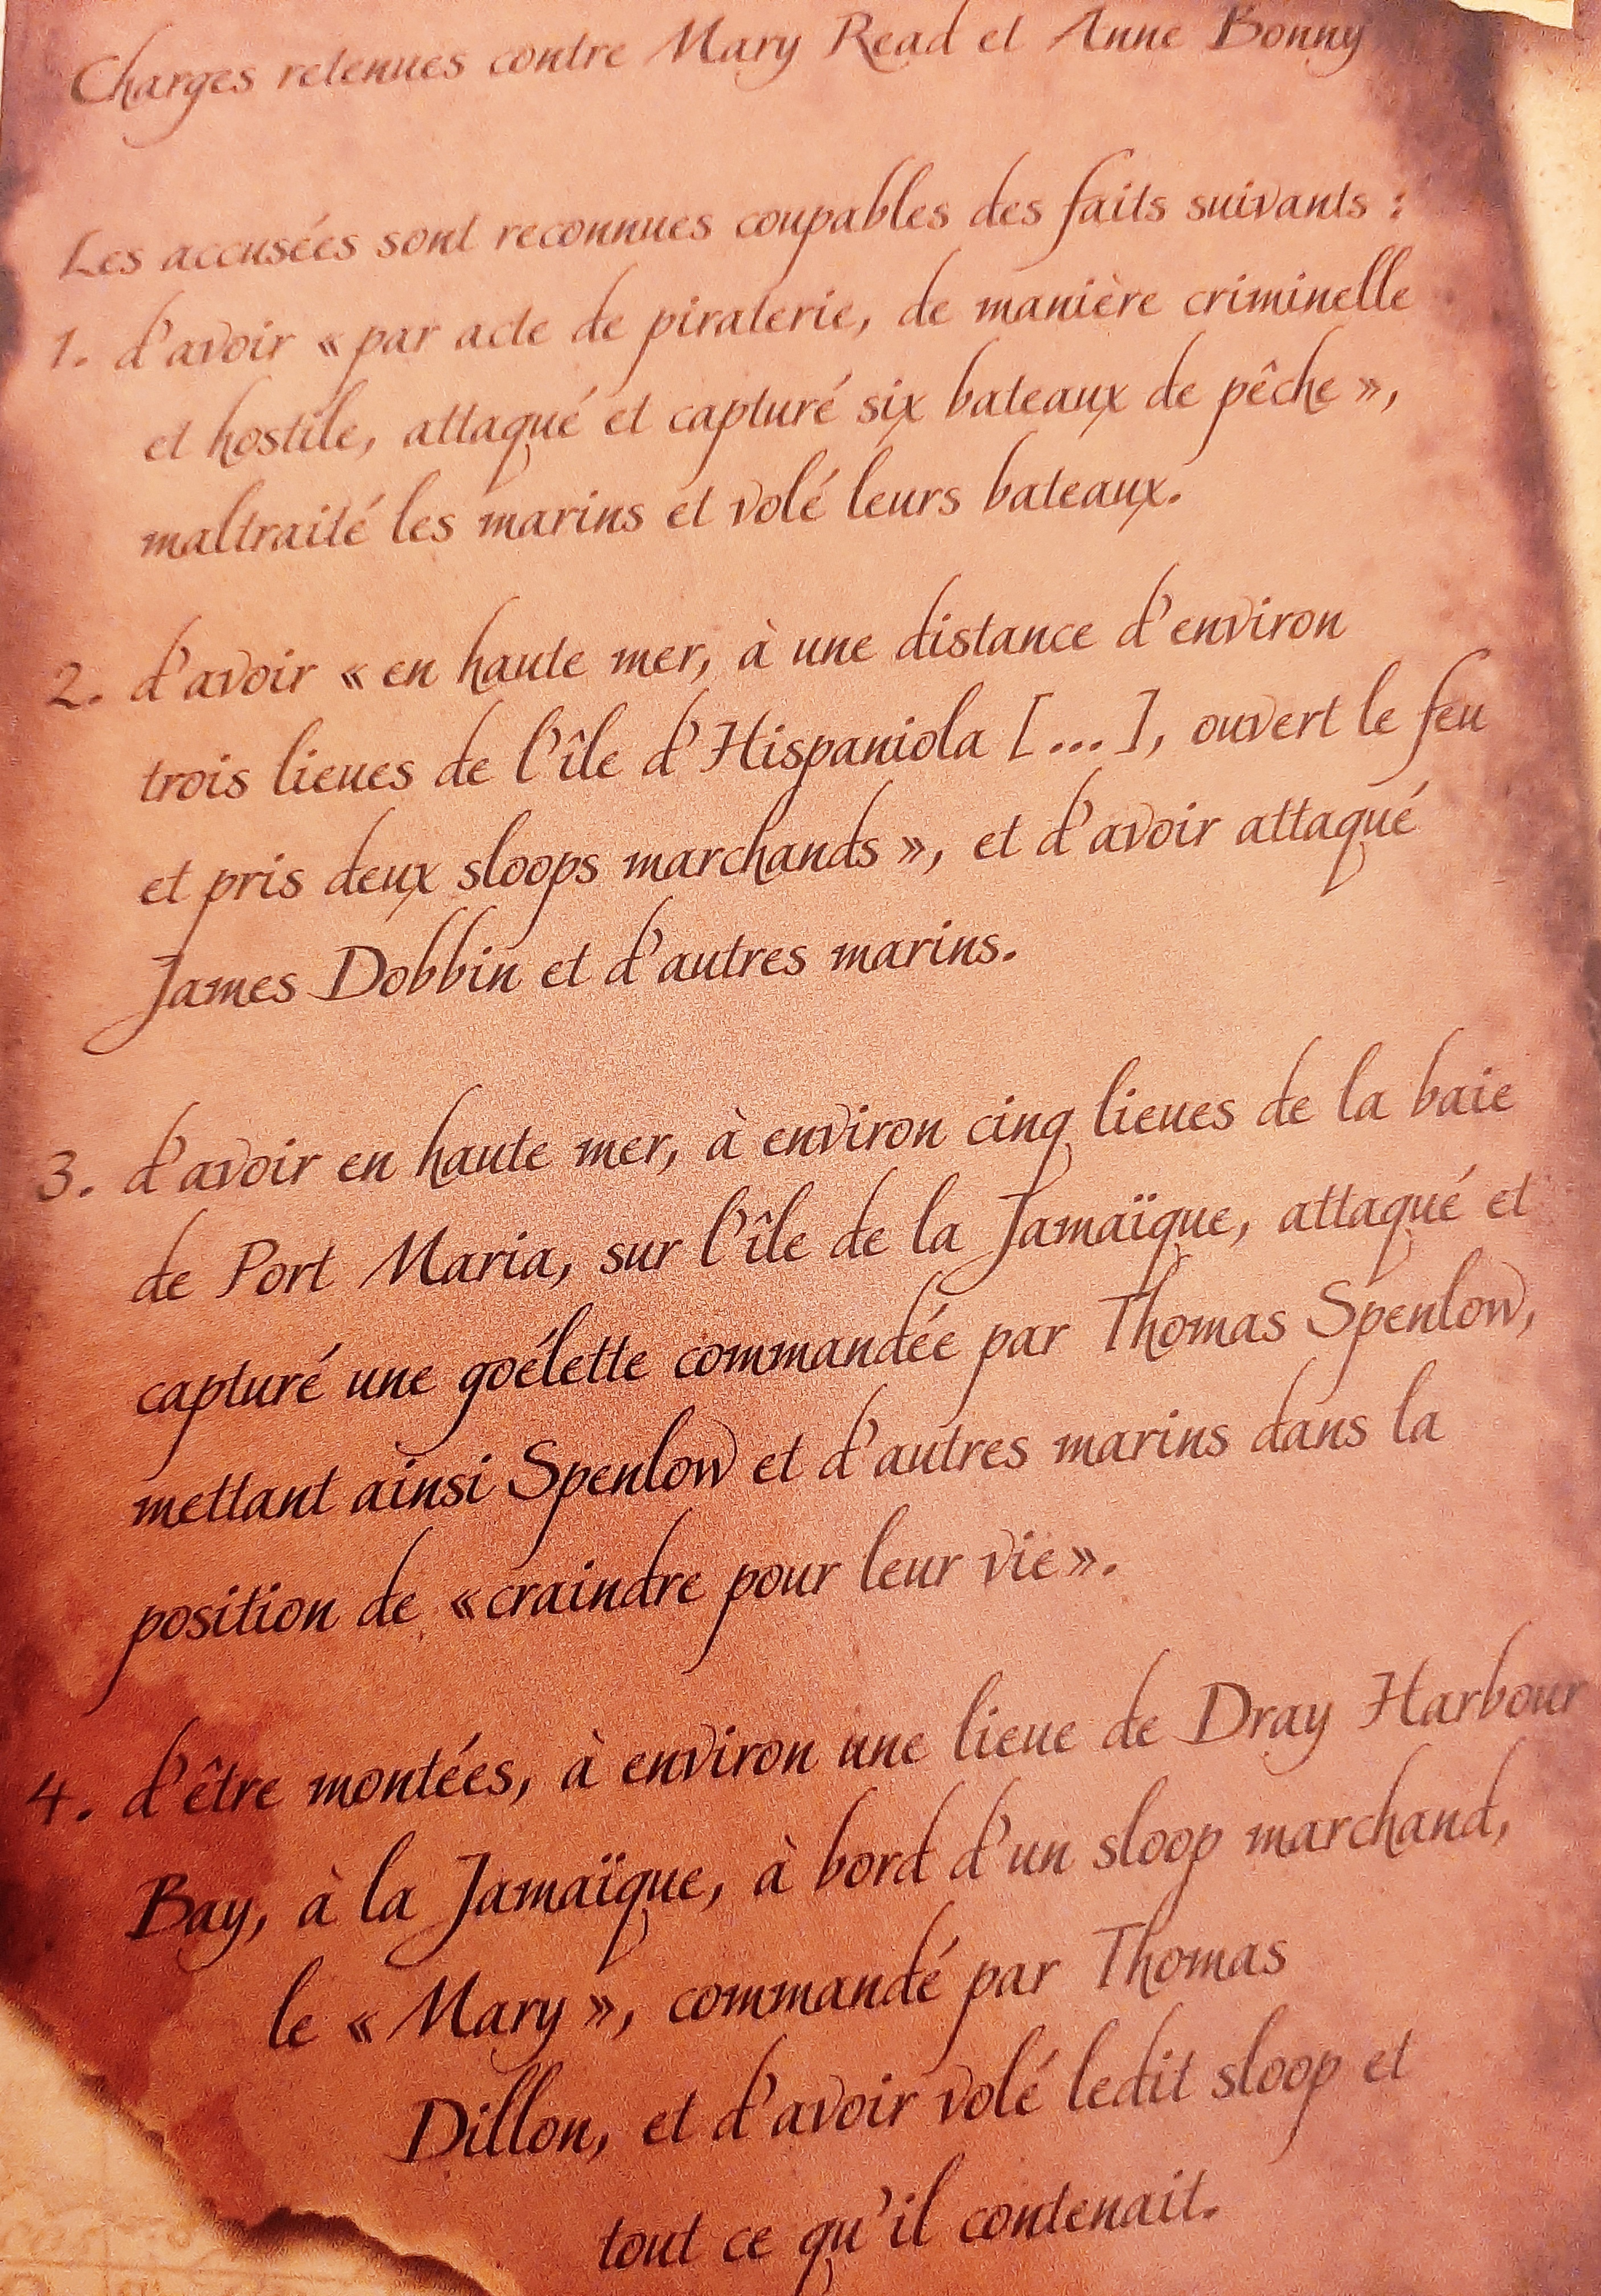 Charges retenues contre Mary Read et Anne Bonny
Les accusées sont reconnues coupables des faits suivants :
1. d'avoir « par acte de piraterie, de manière criminelle
et hostile, attaqué et capturé six bateaux de pêche »,
maltraité les marins et volé leurs bateaux.
2. d'avoir « en haute mer, à une distance d'environ
trois lieues de l'île d'Hispaniola [...], ouvert le feu
et pris deux sloops marchands », et d'avoir attaqué
James Dobbin et d'autres marins.
3. d'avoir en haute mer, à environ cinq lieues de la baie
de Port Maria, sur l'île de la Jamaïque, attaqué et
capturé une goélette commandée par Thomas Spenlow,
mettant ainsi Spenlow et d'autres marins dans la
position de « craindre pour leur vie ».
4. d'être montées, à environ une lieue de Dray Harbour
Bay, à la Jamaïque, à bord d'un sloop marchand,
le « Mary », commandé par Thomas
Dillon, et d'avoir volé ledit sloop et
tout ce qu'il contenait.